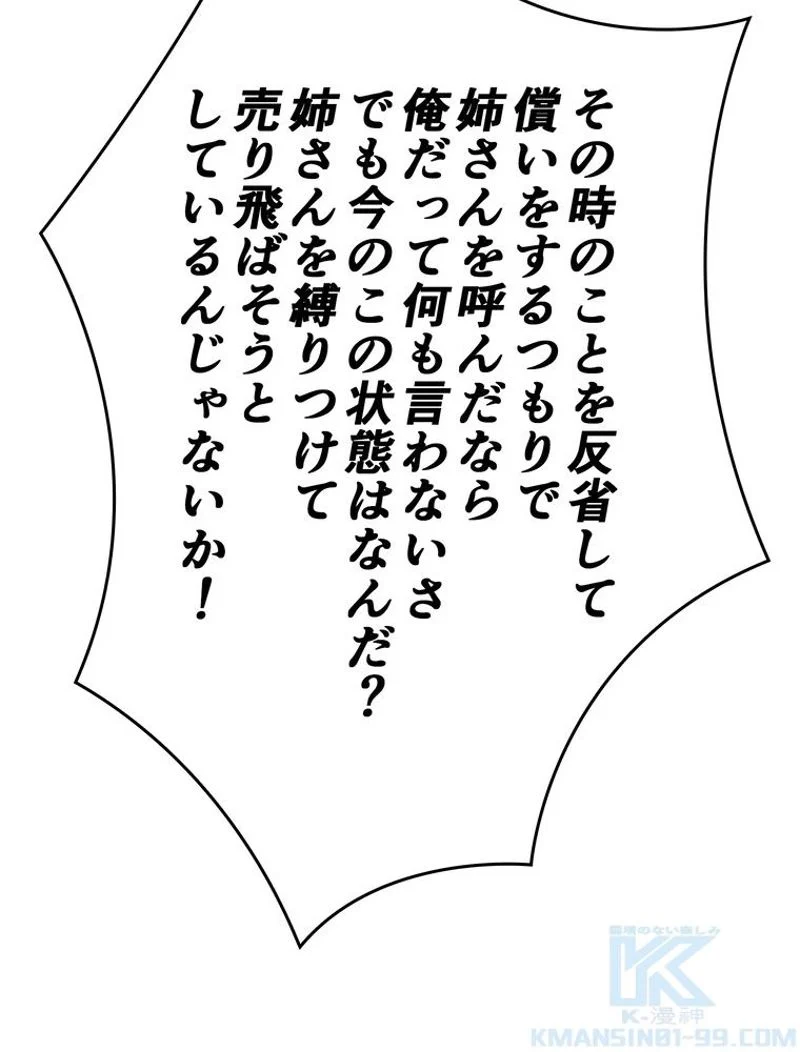 その時のことを反省して
償いをするつもりで
姉さんを呼んだなら
俺だって何も言わないさ
でも今のこの状態はなんだ?
姉さんを縛りつけて
売り飛ばそうと
しているんじゃないか!
K-漫神
KMANSIN01-99.COM